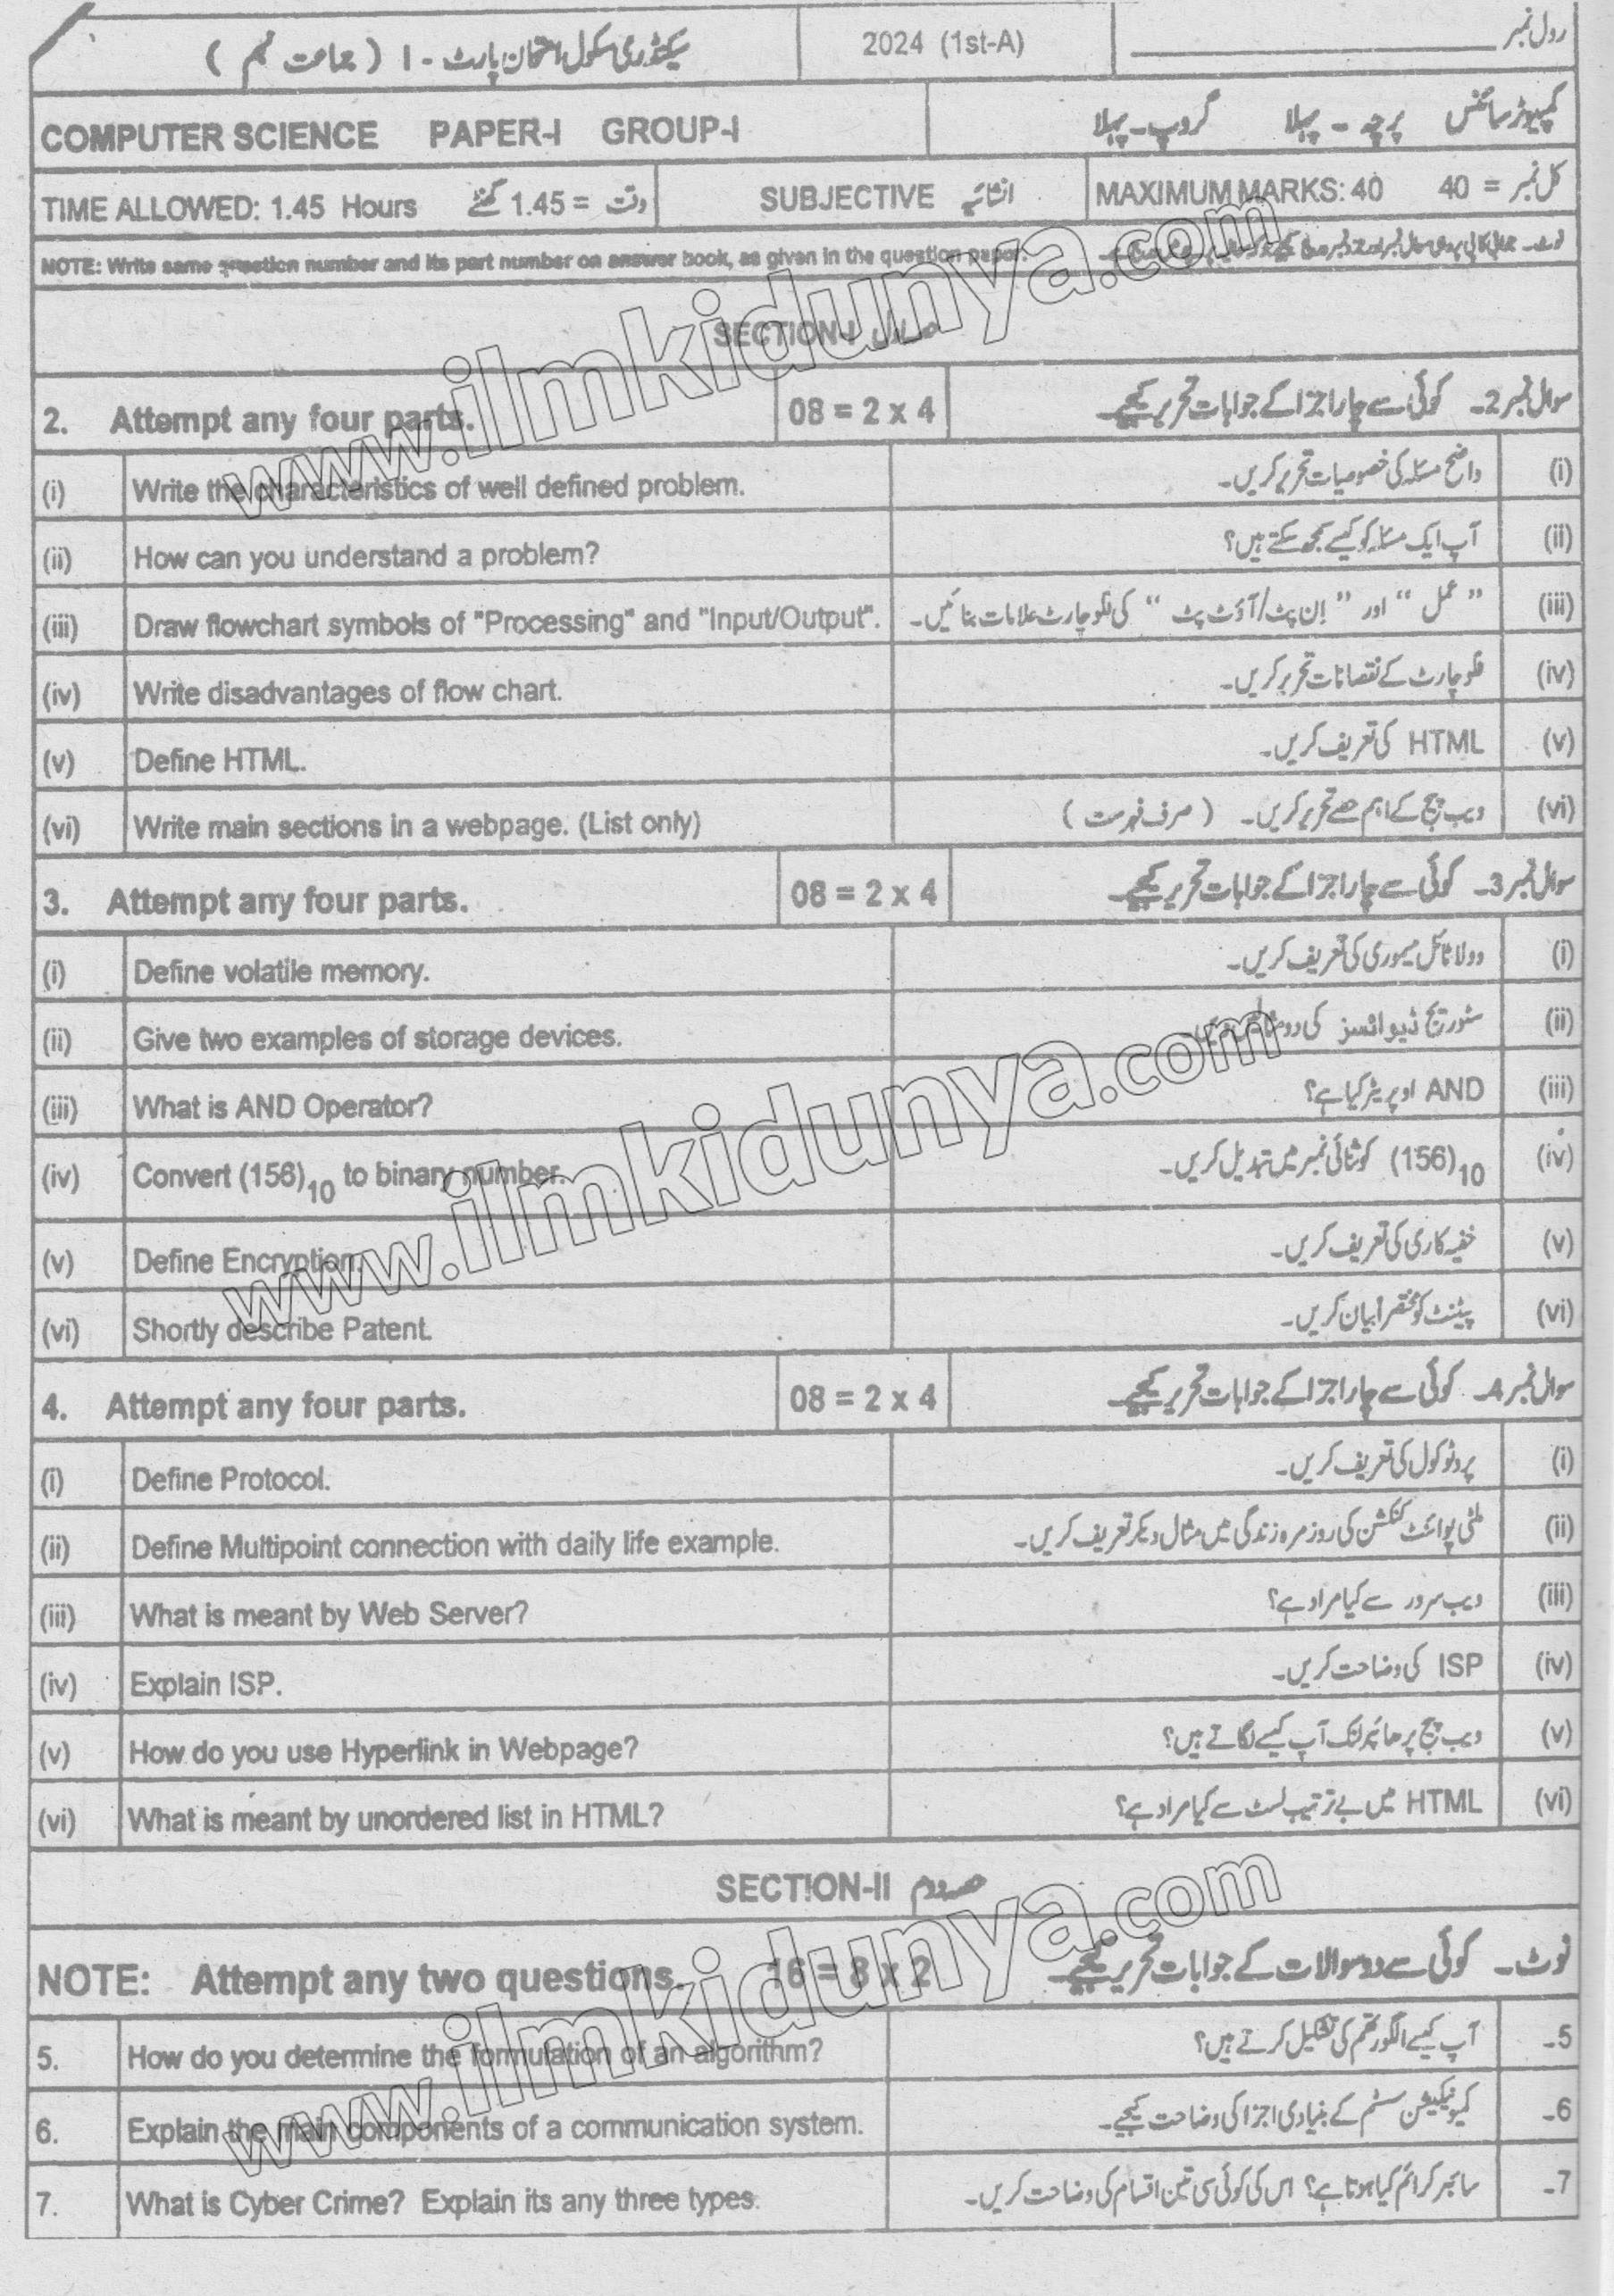 سیکنڈری سکول امتحان پارٹ - I ( جماعت نہم ) 2024 (1st-A) رول نمبر
COMPUTER SCIENCE PAPER-I GROUP-I کمپیوٹر سائنس پرچہ - پہلا گروپ - پہلا
TIME ALLOWED: 1.45 Hours وقت = 1.45 گھنٹے SUBJECTIVE انشائیہ MAXIMUM MARKS: 40 کل نمبر = 40
NOTE: Write same question number and its part number on answer book, as given in the question paper. نوٹ۔
SECTION-I حصہ اول
2. Attempt any four parts. 08 = 2 x 4 سوال نمبر 2۔ کوئی سے چار اجزا کے جوابات تحریر کیجیے۔
(i) Write the characteristics of well defined problem. واضح مسئلہ کی خصوصیات تحریر کریں۔ (i)
(ii) How can you understand a problem? آپ ایک مسئلہ کو کیسے سمجھ سکتے ہیں؟ (ii)
(iii) Draw flowchart symbols of "Processing" and "Input/Output". "عمل" اور "اِن پٹ/آؤٹ پٹ" کی فلو چارٹ علامات بنائیں۔ (iii)
(iv) Write disadvantages of flow chart. فلو چارٹ کے نقصانات تحریر کریں۔ (iv)
(v) Define HTML. HTML کی تعریف کریں۔ (v)
(vi) Write main sections in a webpage. (List only) ویب پیج کے اہم حصے تحریر کریں۔ ( صرف فہرست ) (vi)
3. Attempt any four parts. 08 = 2 x 4 سوال نمبر 3۔ کوئی سے چار اجزا کے جوابات تحریر کیجیے۔
(i) Define volatile memory. وولاٹائل میموری کی تعریف کریں۔ (i)
(ii) Give two examples of storage devices. سٹوریج ڈیوائسز کی دو (ii)
(iii) What is AND Operator? AND اوپریٹر کیا ہے؟ (iii)
(iv) Convert (156)10 to binary number. (156)10 کو ثنائی نمبر میں تبدیل کریں۔ (iv)
(v) Define Encryption. خفیہ کاری کی تعریف کریں۔ (v)
(vi) Shortly describe Patent. پیٹنٹ کو مختصراً بیان کریں۔ (vi)
4. Attempt any four parts. 08 = 2 x 4 سوال نمبر 4۔ کوئی سے چار اجزا کے جوابات تحریر کیجیے۔
(i) Define Protocol. پروٹوکول کی تعریف کریں۔ (i)
(ii) Define Multipoint connection with daily life example. ملٹی پوائنٹ کنکشن کی روزمرہ زندگی میں مثال دیکر تعریف کریں۔ (ii)
(iii) What is meant by Web Server? ویب سرور سے کیا مراد ہے؟ (iii)
(iv) Explain ISP. ISP کی وضاحت کریں۔ (iv)
(v) How do you use Hyperlink in Webpage? ویب پیج پر ھائپر لنک آپ کیسے لگاتے ہیں؟ (v)
(vi) What is meant by unordered list in HTML? HTML میں بے ترتیب لسٹ سے کیا مراد ہے؟ (vi)
SECTION-II حصہ دوم
NOTE: Attempt any two questions. 16 = 8 x 2 نوٹ۔ کوئی سے دو سوالات کے جوابات تحریر کیجیے۔
5. How do you determine the formulation of an algorithm? آپ کیسے الگورتھم کی تشکیل کرتے ہیں؟ 5۔
6. Explain the main components of a communication system. کمیونیکیشن سسٹم کے بنیادی اجزا کی وضاحت کیجیے۔ 6۔
7. What is Cyber Crime? Explain its any three types. سائبر کرائم کیا ہوتا ہے؟ اس کی کوئی سی تین اقسام کی وضاحت کریں۔ 7۔
www.ilmkidunya.com
www.ilmkidunya.com
www.ilmkidunya.com